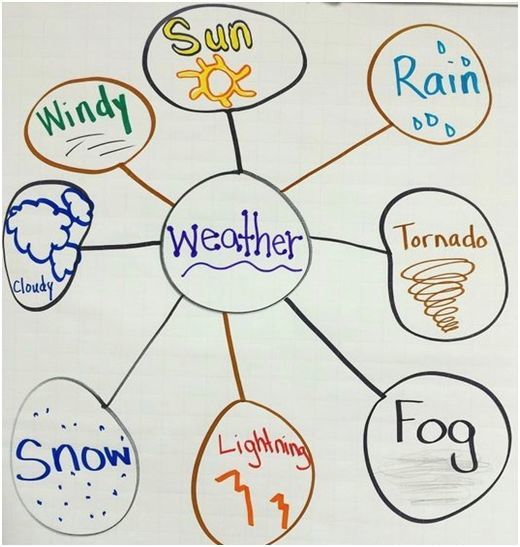 Sun
Rain
Windy
Weather
Tornado
Cloudy
Fog
Snow
Lightning